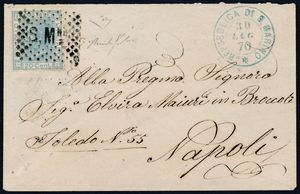 S. M
20 Cent
REPUBBLICA DI S. MARINO
30
LUG
76
Alla Pregma Signora
Sigª Elvira Maiuri in Broccoli
Toledo Nº 55
Napoli